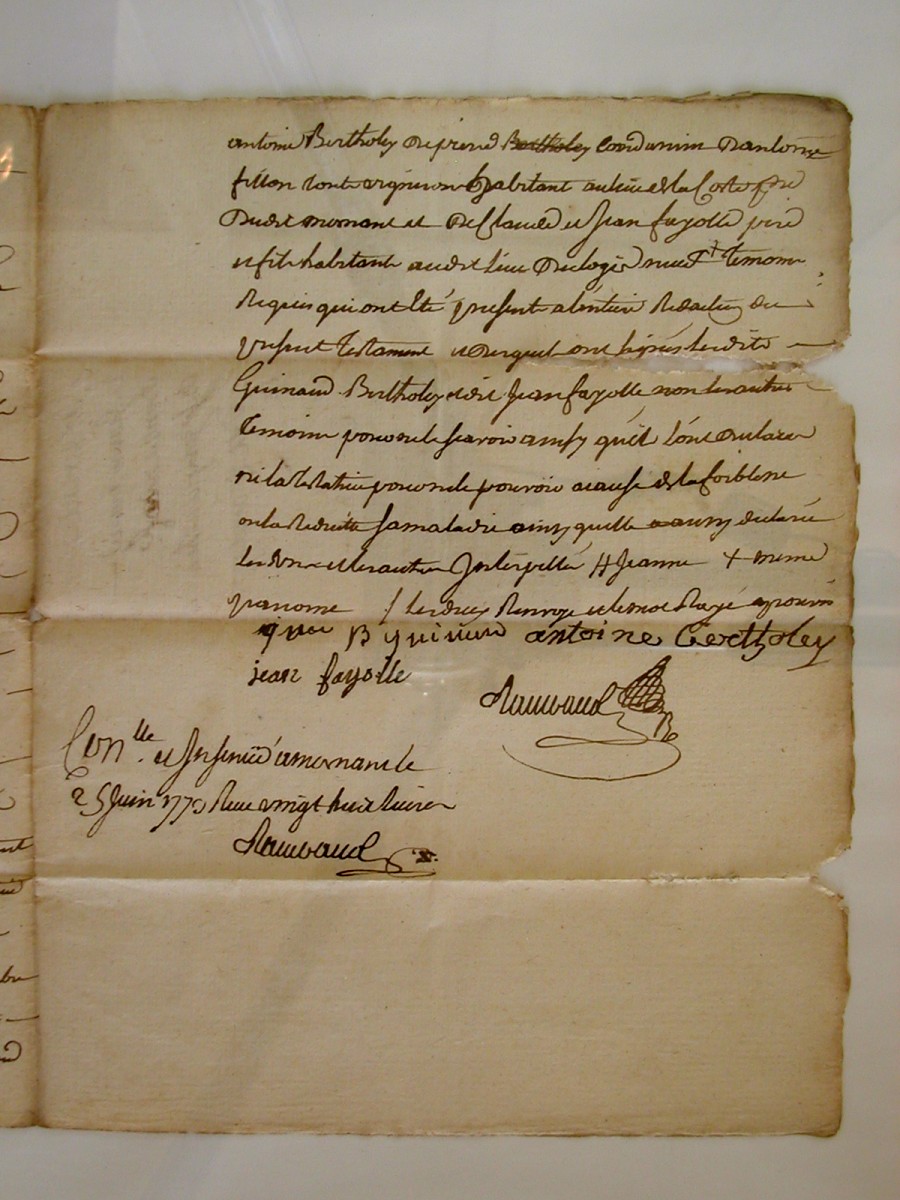 antoine Bertholey depierre Bertholey Cordonnier Dantoine
fillon tout vigneron habitant au lieu de la Coste
Dudit mornant et De Claude et Jean fayolle pere
et fils habitant audit lieu Dulogis neuf temoins
Requis qui ont été present alentiere Redaction du
present testament et Duquel ont signés lesdits
Guinand Bertholey et dit Jean fayolle non les autres
temoins pour ne le scavoir ainsy quils l'ont Declaré
ni la testatrice pour ne le pouvoir acause de la foiblesse
ou la Reduitte sa maladie ainsy quelle a aussy declaré
les Uns et les autres Interpellés # Jeanne + meme
/ les deux Renvoys et le mot Rayé approuvés
B guinand antoine bertholey
jean fayolle
Rambaud
Con.lle et Insinué a mornant le
25 Juin 1773 Reçu vingt huit livres
Rambaud